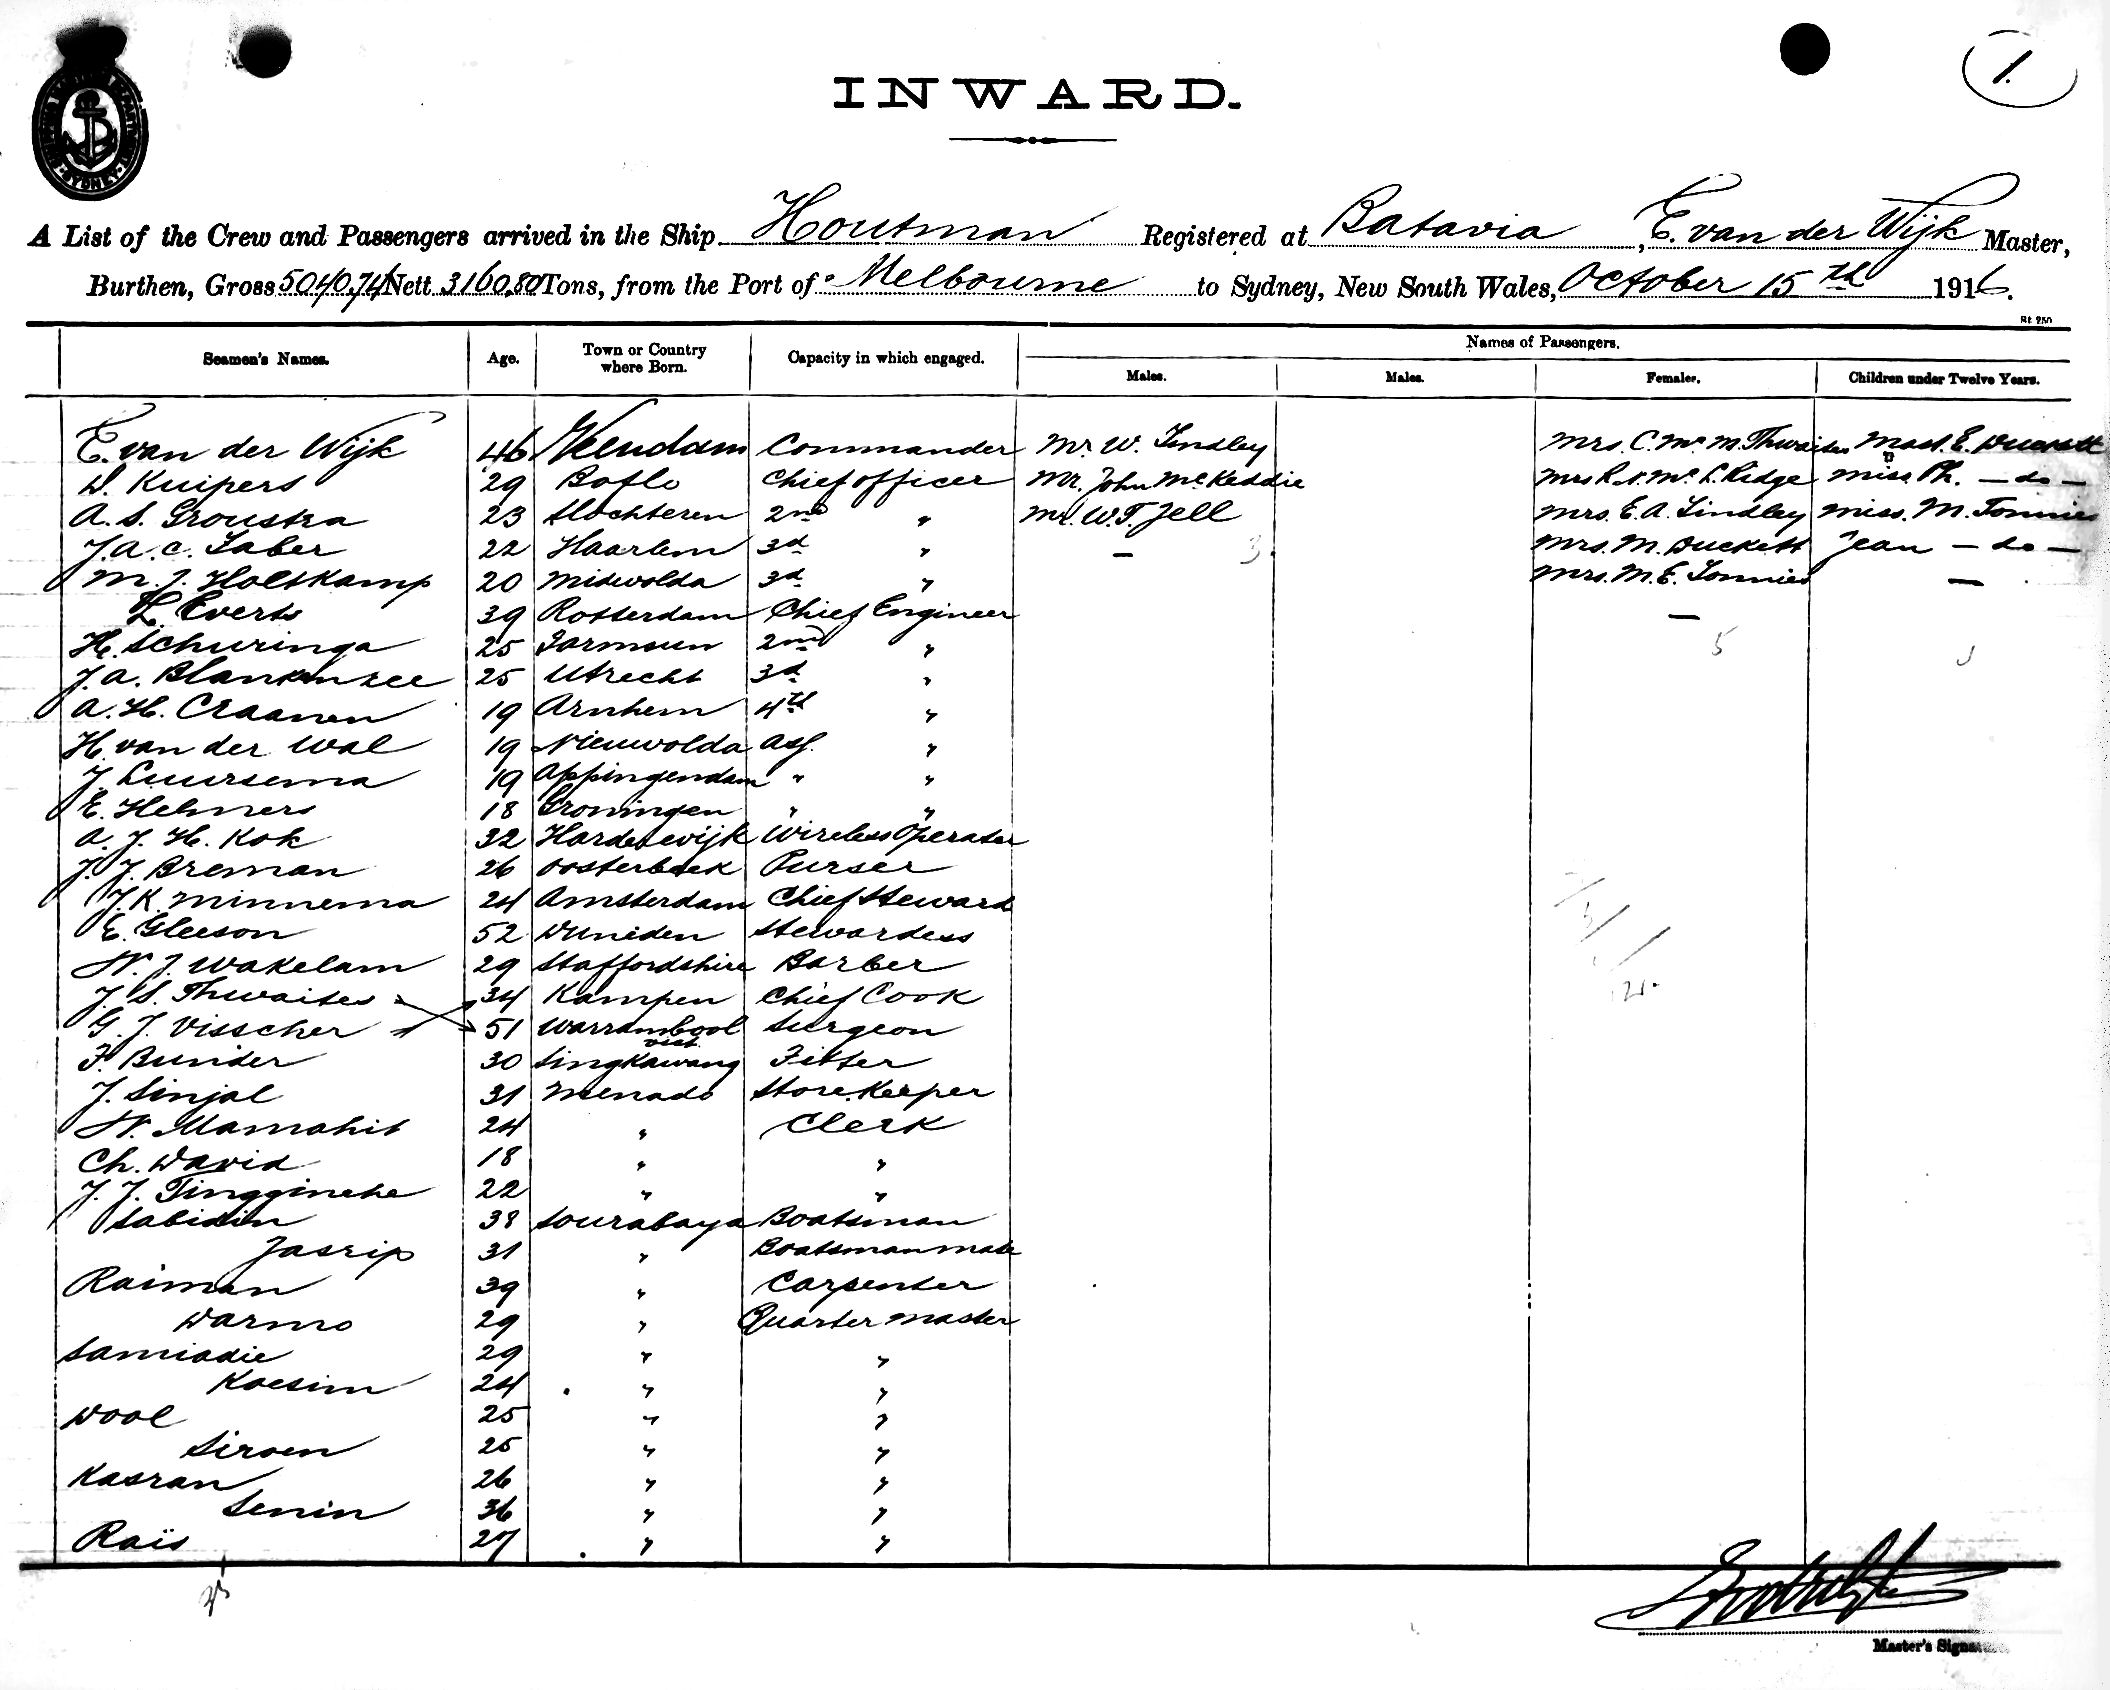 1.
INWARD.
A List of the Crew and Passengers arrived in the Ship Houtman Registered at Batavia, E. van der Wijk Master,
Burthen, Gross 5040,74 Nett 3160,80 Tons, from the Port of Melbourne to Sydney, New South Wales, October 15th 1916.
Seamen's Names. Age. Town or Country where Born. Capacity in which engaged. Names of Passengers.
Males. Males. Females. Children under Twelve Years.
E. van der Wijk 46 Veendam Commander Mr W. Lindley Mrs. C. Mc M. Thwaites Mast. E. Duckett
D. Kuipers 29 Boflo Chief officer Mr. John McKeddie Mrs R. N. Mc L. Ridge Miss Ph. — do —
A. S. Groustra 23 Slochteren 2nd " Mr. W. T. Jell Mrs. E. A. Lindley Miss. M. Tonnies
J. A. C. Faber 22 Haarlem 3d " — 3. Mrs. M. Duckett Jean — do —
M. J. Holtkamp 20 Midwolda 3d " Mrs. M. E. Tonnies —
L. Everts 39 Rotterdam Chief Engineer —
H. Schuringa 25 Farmsum 2nd " 5
J. A. Blankenzee 25 Utrecht 3d "
A. H. Craanen 19 Arnhem 4th "
H. van der Wal 19 Nieuwolda Ass. "
J. Luursema 19 Appingendam " "
E. Helmers 18 Groningen " "
A. J. H. Kok 32 Harderwijk Wireless Operator
J. J. Breman 26 Oosterbeek Purser
J. K. Minnema 24 Amsterdam Chief Steward
E. Gleeson 52 Duneden Stewardess
W. J. Wakelam 29 Staffordshire Barber
J. S. Thwaites 34 Kampen Chief Cook
G. J. Visscher 51 Warrambool Surgeon
vict.
F. Bunder 30 Singkawang Fitter
J. Sinjal 31 Menado Store Keeper
W. Mamahit 24 " Clerk
Ch. David 18 " "
J. J. Tinggineke 22 " "
Sabidin 38 Sourabaya Boatsman
Jasrip 31 " Boatsman mate
Raiman 39 " Carpenter
Darmo 29 " Quarter master
Samiadie 29 " "
Kaesim 24 " "
Dool 25 " "
Siroen 25 " "
Kasran 26 " "
Senin 36 " "
Raïs 27 " "
Master's